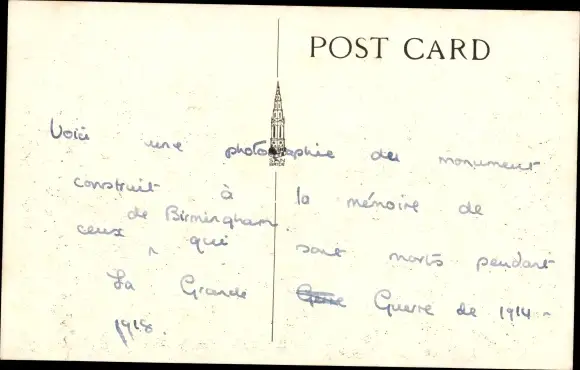 POST CARD
Voici une photographie du monument
construit à la mémoire de
ceux de Birmingham qui sont morts pendant
La Grande Guerre de 1914-
1918.